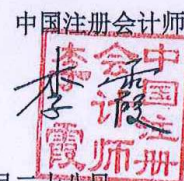 中国注册会计师
李霞
中国注册
会计师
李霞